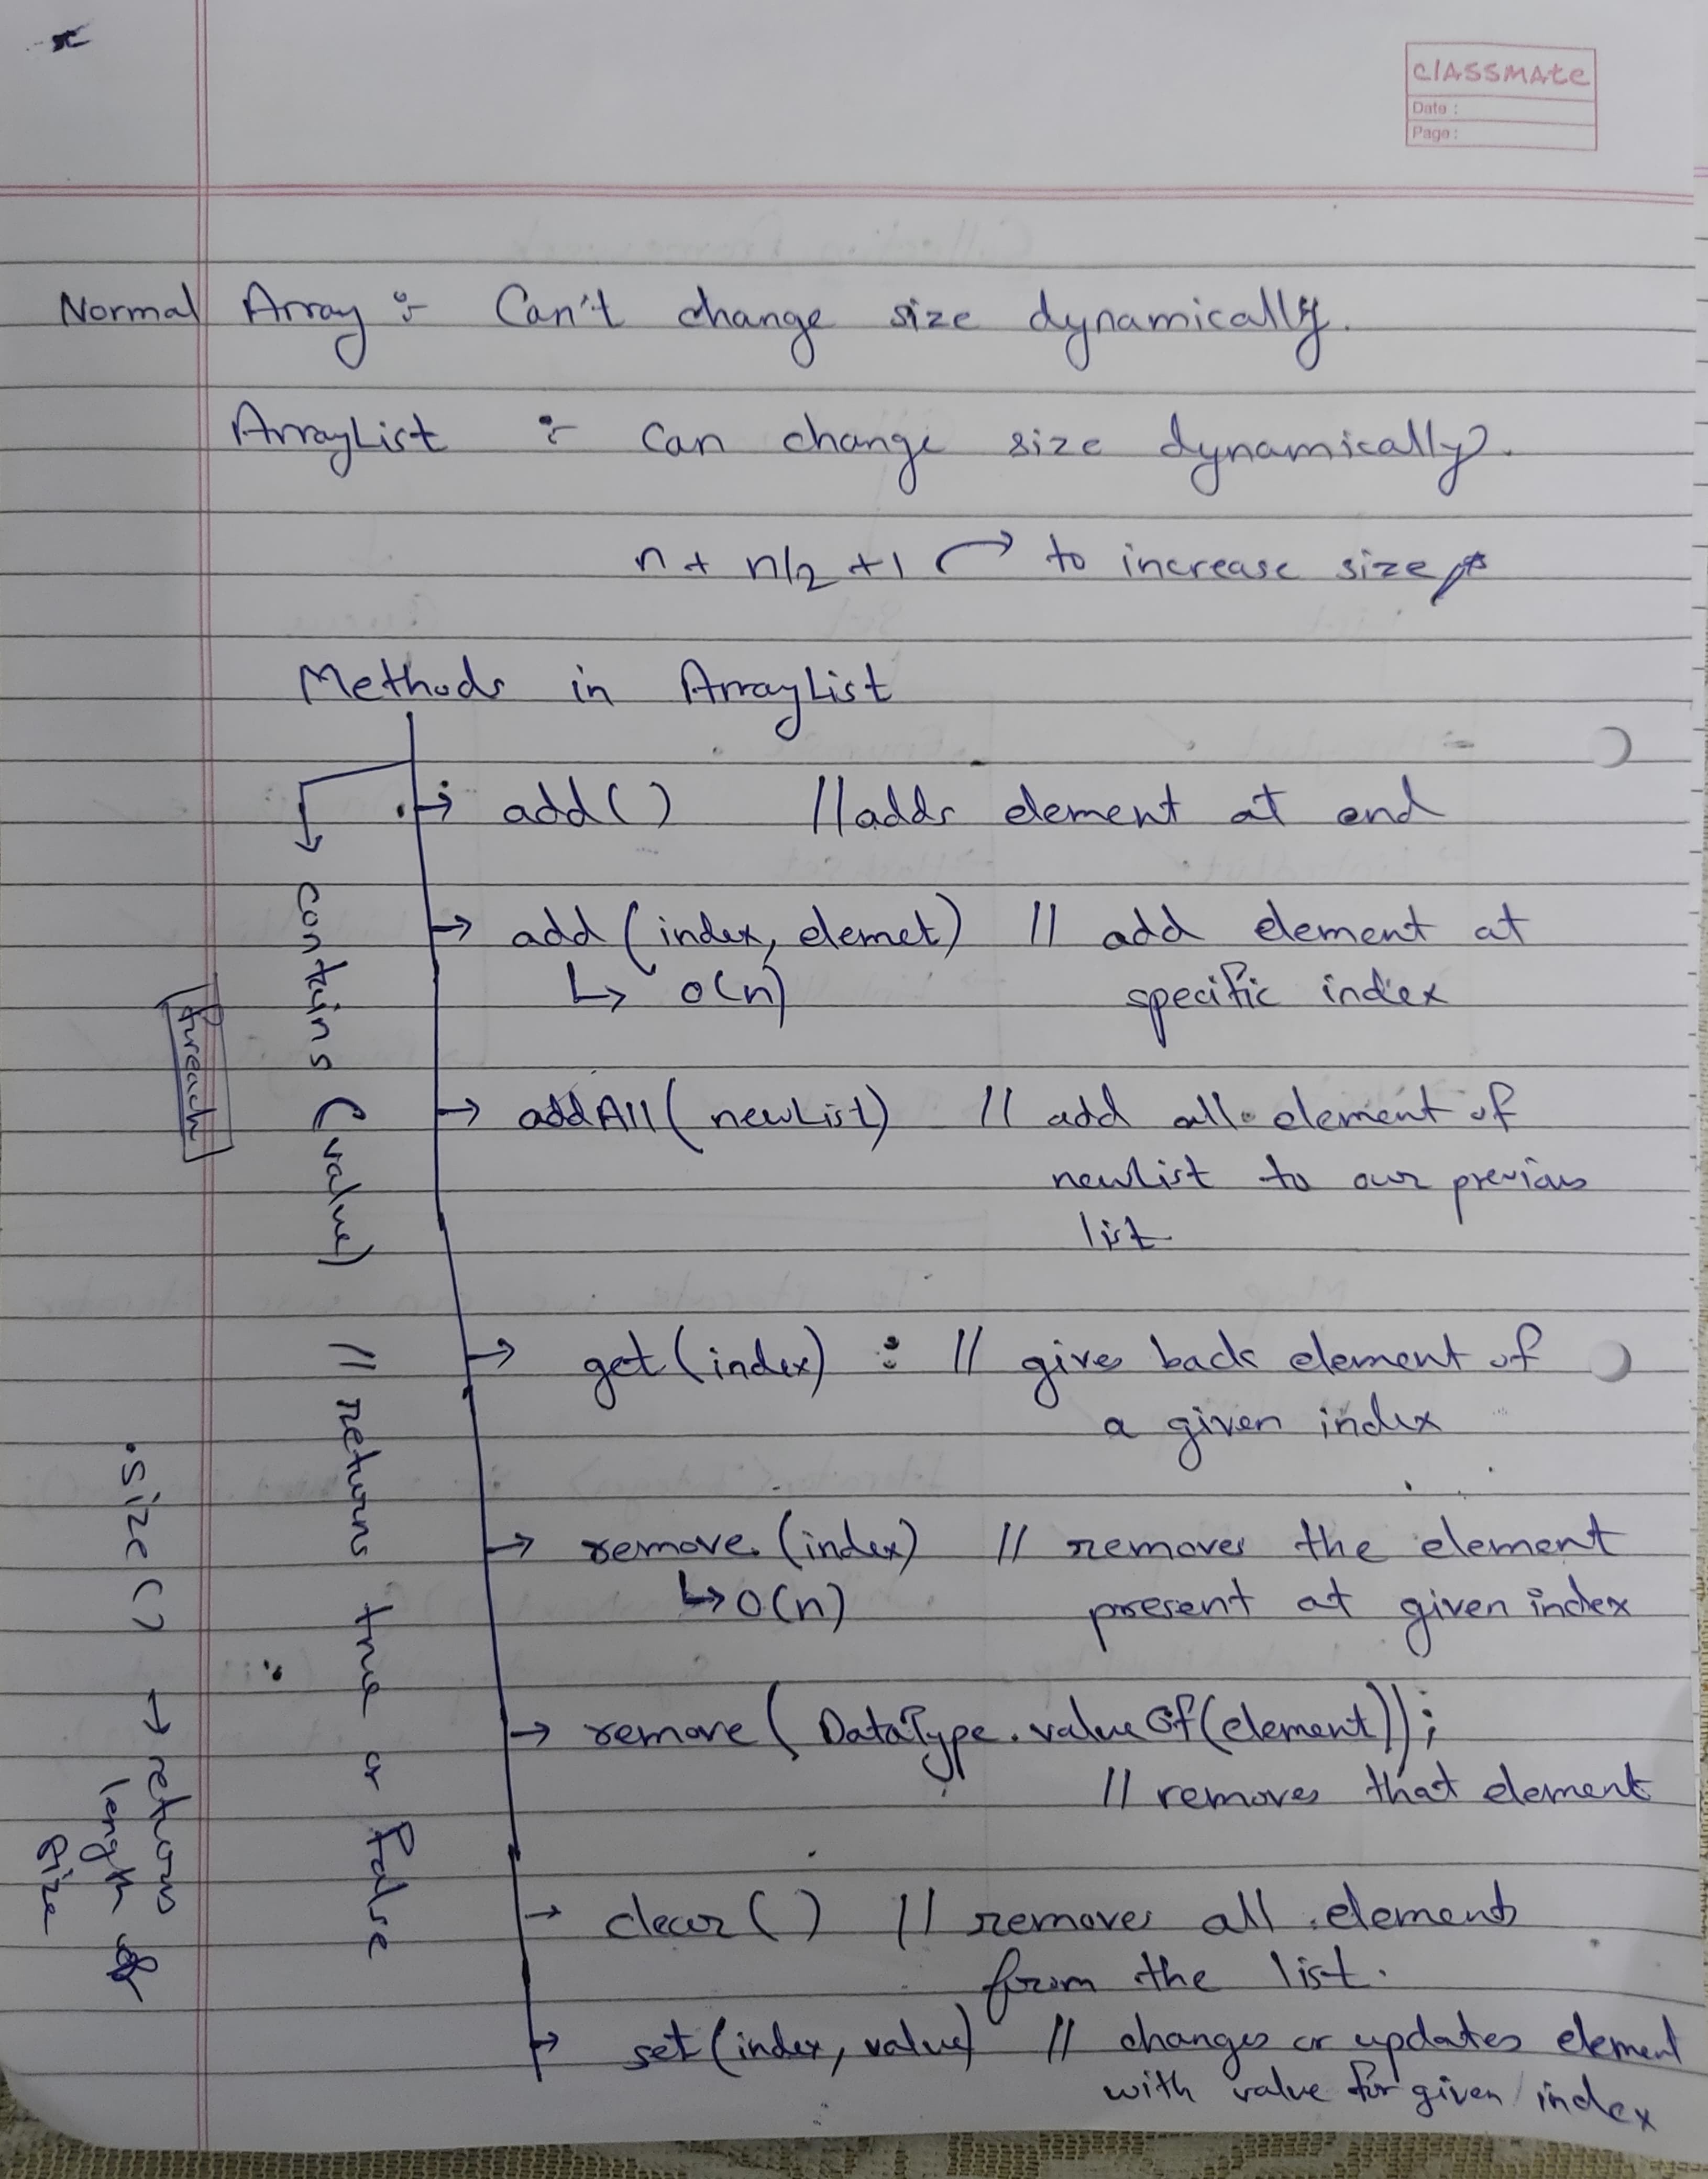 classmate
Date :
Page :
Normal Array :- Can't change size dynamically.
ArrayList :- Can change size dynamically.
n + n/2 +1 → to increase size
Methods in ArrayList
→ add() //adds element at end
→ add (index, elemet) // add element at
↳ O(n) specific index
→ addAll( newList) // add all element of
newList to our previous
list
→ get (index) : // gives back element of
a given index
→ remove (index) // removes the element
↳ O(n) present at given index
→ remove ( DataType.valueOf(element));
// removes that element
→ clear() // removes all elements
from the list.
→ set (index, value) // changes or updates element
with value for given index
→ contains (value) // returns true or false
foreach
.size() → returns
length
size